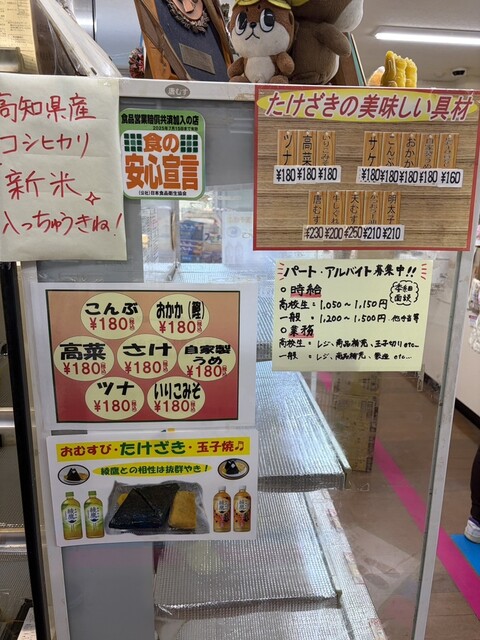 高知県産
コシヒカリ
新米
入っちゅうきね!
食品営業賠償共済加入の店
食の
安心宣言
(公社)日本食品衛生協会
唐むす
たけざきの美味しい具材
ツナ
高菜
サケ
こんぶ
おかか
¥180 ¥180 ¥180
¥180 ¥180 ¥180 ¥180 ¥160
唐むす
天むす
明太子
¥230 ¥200 ¥250 ¥210 ¥210
パート・アルバイト募集中!!
○時給
高校生:1,050〜1,150円
一般:1,200〜1,500円
○業務
高校生:レジ、商品補充、玉子切りetc…
一般:レジ、商品補充、
こんぶ
¥180
おかか(鰹)
¥180
高菜
¥180
さけ
¥180
自家製
うめ
¥180
ツナ
¥180
いりこみそ
¥180
おむすび・たけざき・玉子焼♫
綾鷹との相性は抜群やき!
綾鷹